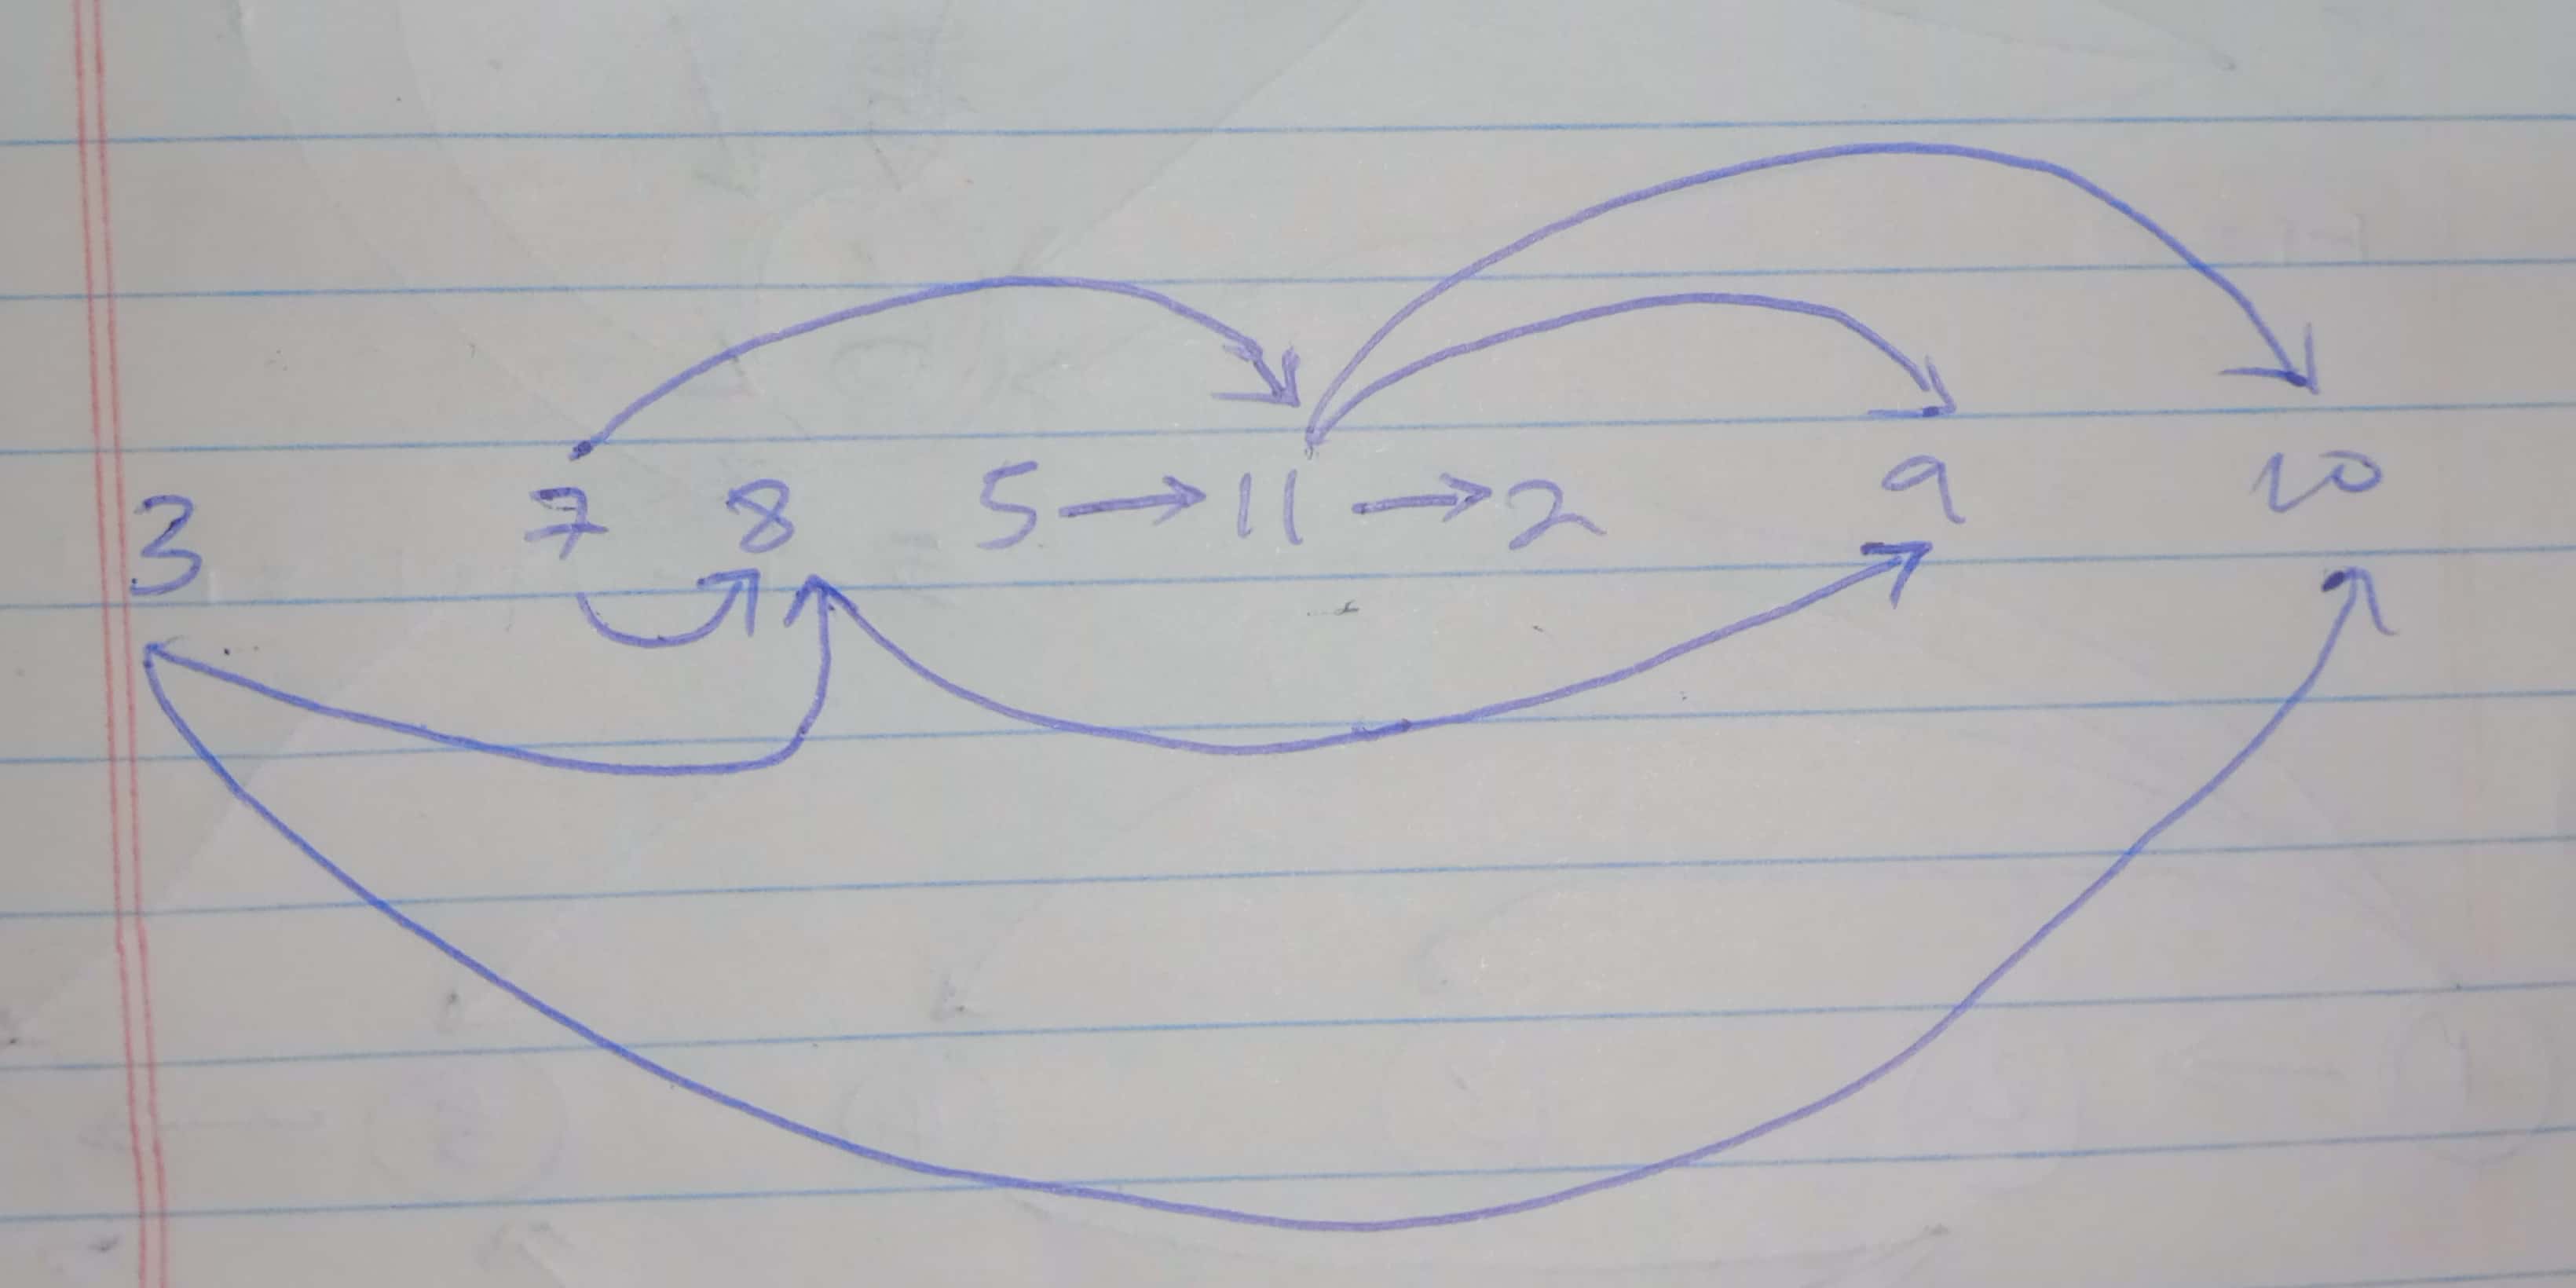 3 7 8 5 → 11 → 2 9 10